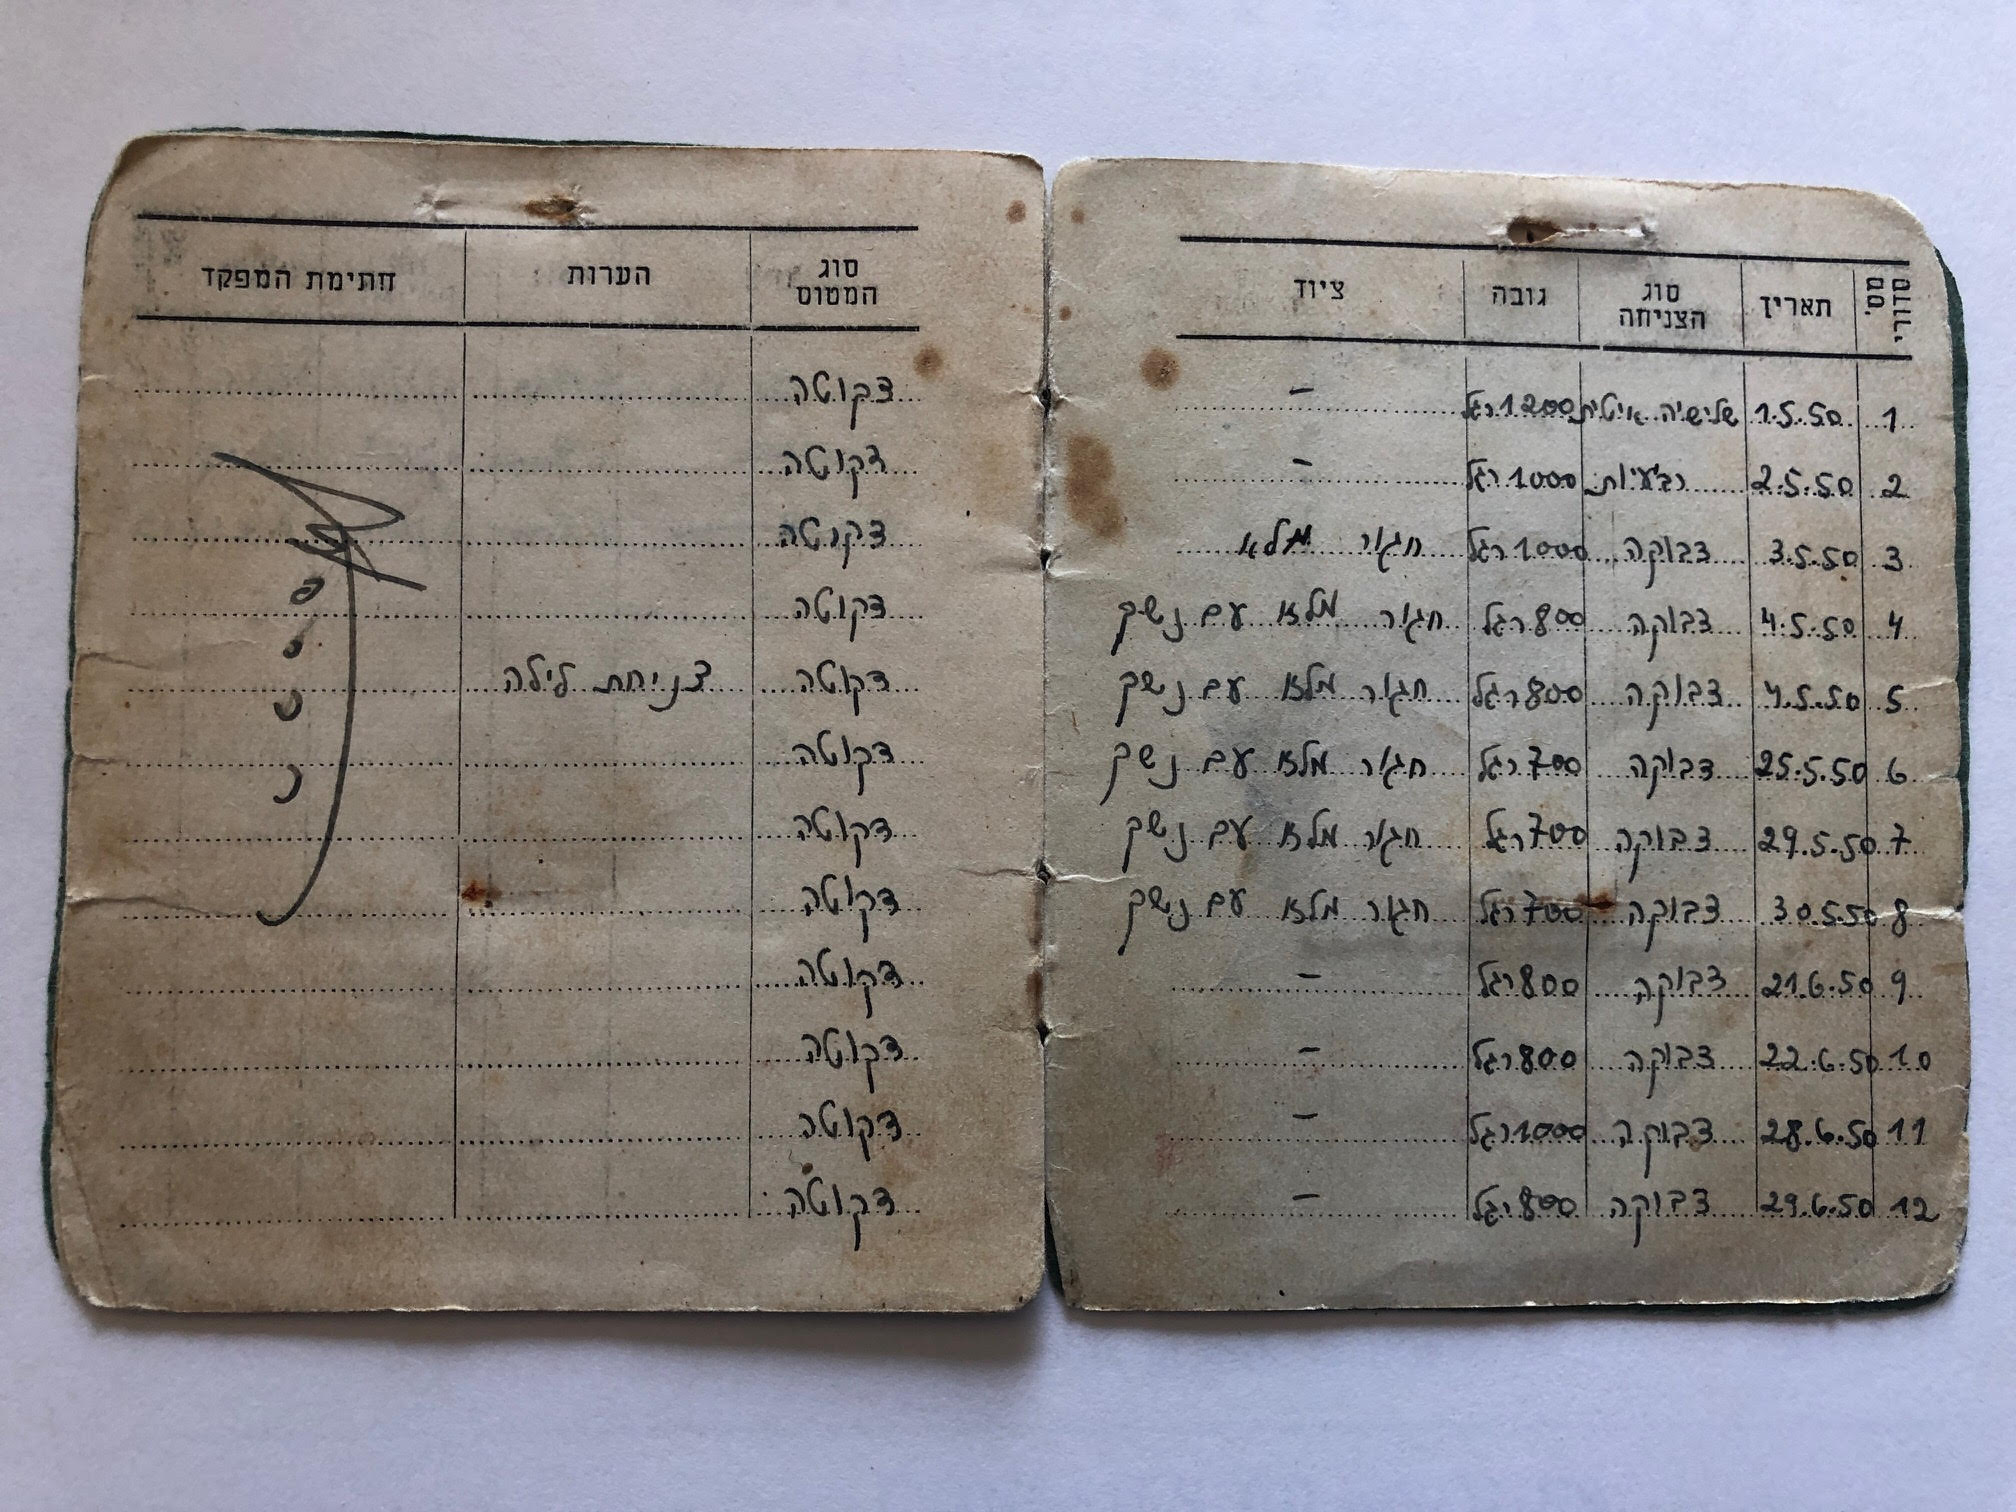 מס' סדורי תאריך סוג הצניחה גובה ציוד
1 1.5.50 שלישיה איטית 1200 רגל —
2 2.5.50 רביעיות 1000 רגל —
3 3.5.50 צבוקה 1000 רגל חגור מלא
4 4.5.50 צבוקה 800 רגל חגור מלא עם נשק
5 4.5.50 צבוקה 800 רגל חגור מלא עם נשק
6 25.5.50 צבוקה 700 רגל חגור מלא עם נשק
7 29.5.50 צבוקה 700 רגל חגור מלא עם נשק
8 30.5.50 צבוקה 700 רגל חגור מלא עם נשק
9 21.6.50 צבוקה 800 רגל —
10 22.6.50 צבוקה 800 רגל —
11 28.6.50 צבוקה 1000 רגל —
12 29.6.50 צבוקה 800 רגל —
סוג המטוס הערות חתימת המפקד
דקוטה
דקוטה
דקוטה
דקוטה
דקוטה צניחת לילה
דקוטה
דקוטה
דקוטה
דקוטה
דקוטה
דקוטה
דקוטה